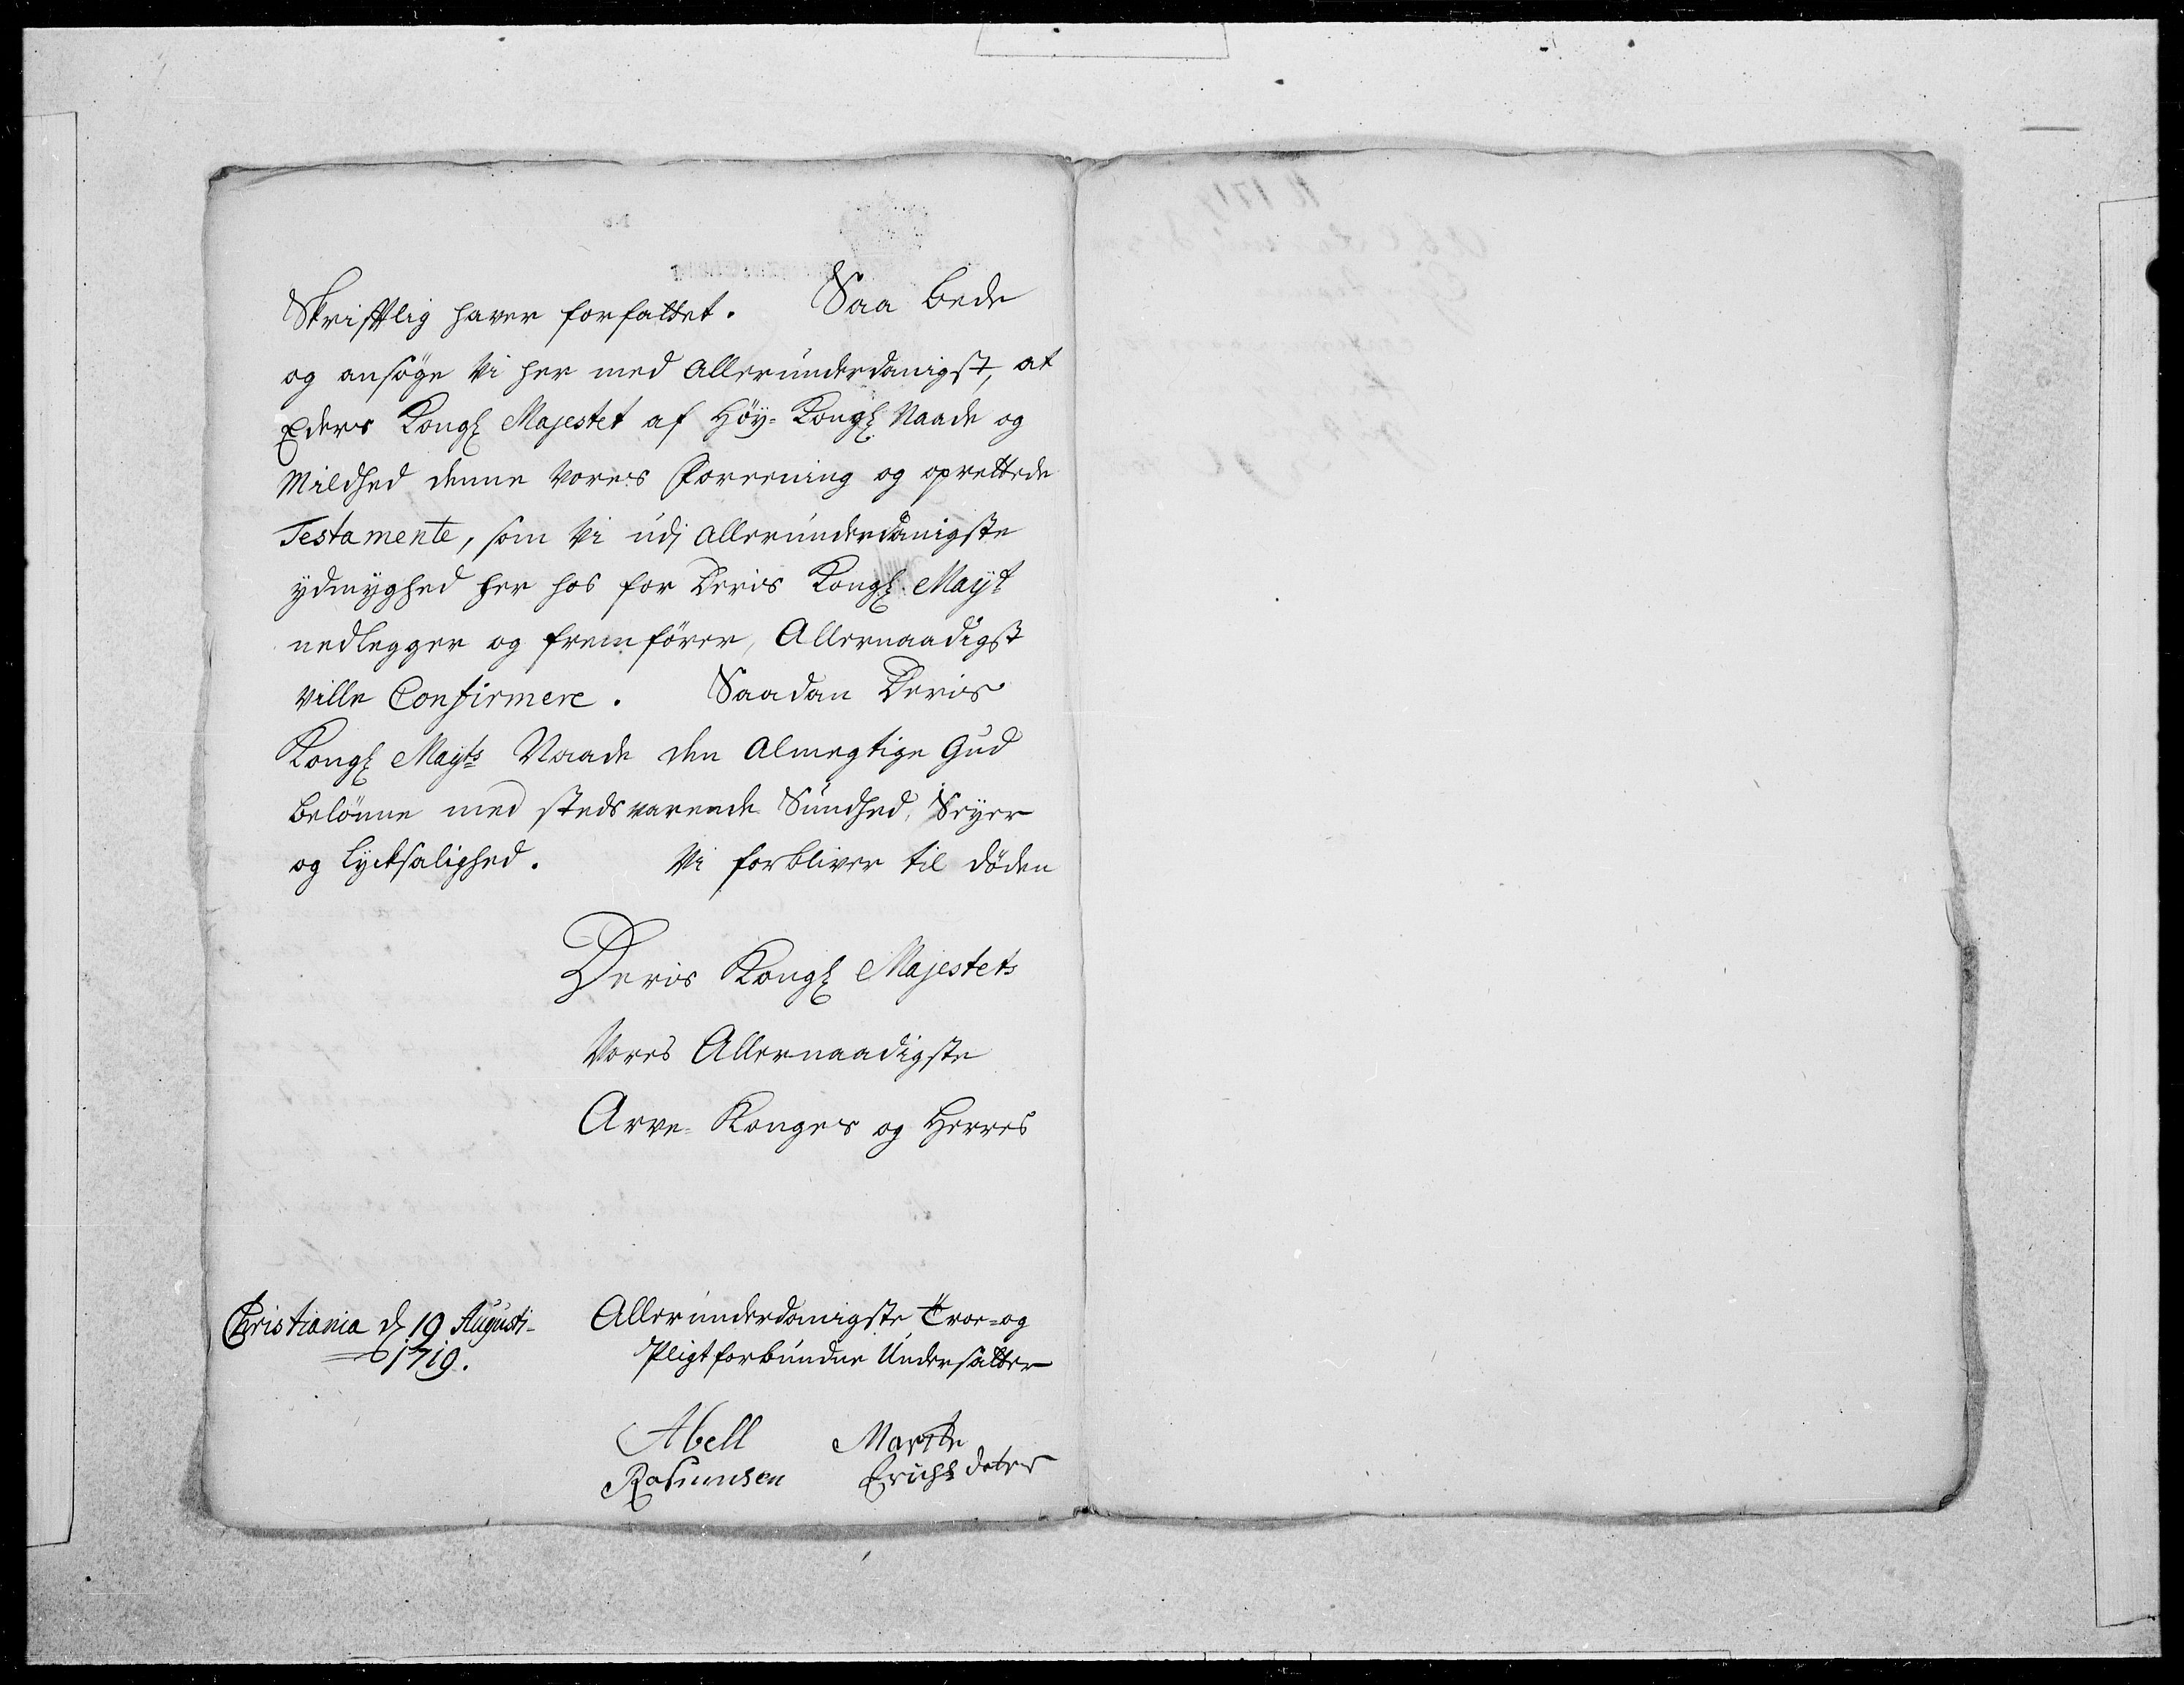 Skrifftlig haver forfattet. Saa bede
og ansøge Vi her med allerunderdanigst, at
Eders Kongl Majestet af Høy-Kongl Naade og
Mildhed denne Vores Foreening og oprettede
Testamente, som Vi udj allerunderdanigste
ydmyghed her hos for Deris Kongl. Mayt
nedlegger og fremfører, Allernaadigst
ville Confirmere. Saadan Deris
Kongl Mayts Naade den Almegtige Gud
belønne med stedsvarende Sundhed, Seyer
og Lycksalighed. Vi forbliver til døden
Deris Kongl Majestets
Vores Allernaadigste
Arve-Konges og Herres
Christiania d 19 Augusti
1719.
Allerunderdanigste Troe-og
Pligtforbundne Undersatter
Abell Marite
Rasmusen Erichsdater